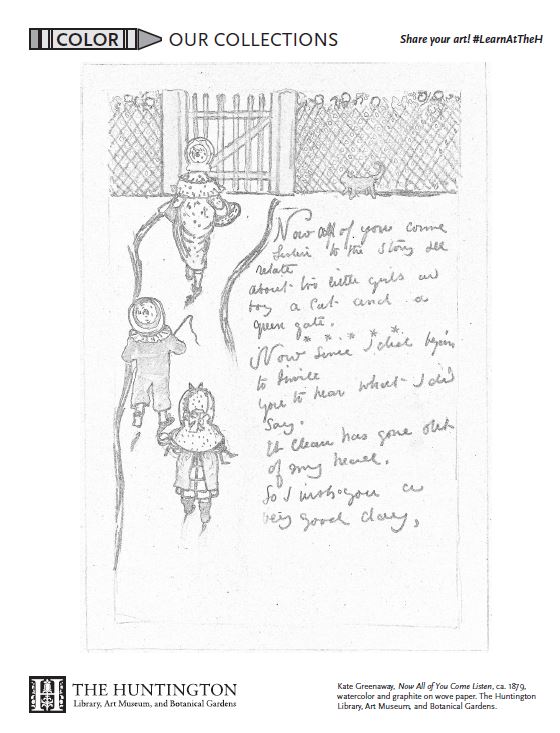 COLOR OUR COLLECTIONS
Share your art! #LearnAtTheH
Now all of you come
listen to the story I'll
relate
about two little girls and
boy a Cat and a
green gate.
* * * * *
Now since I did begin
to write
you to hear what I did
Say.
It Clean has gone out
of my head.
So I wish you a
very good day,
THE HUNTINGTON
Library, Art Museum, and Botanical Gardens
Kate Greenaway, Now All of You Come Listen, ca. 1879,
watercolor and graphite on wove paper. The Huntington
Library, Art Museum, and Botanical Gardens.